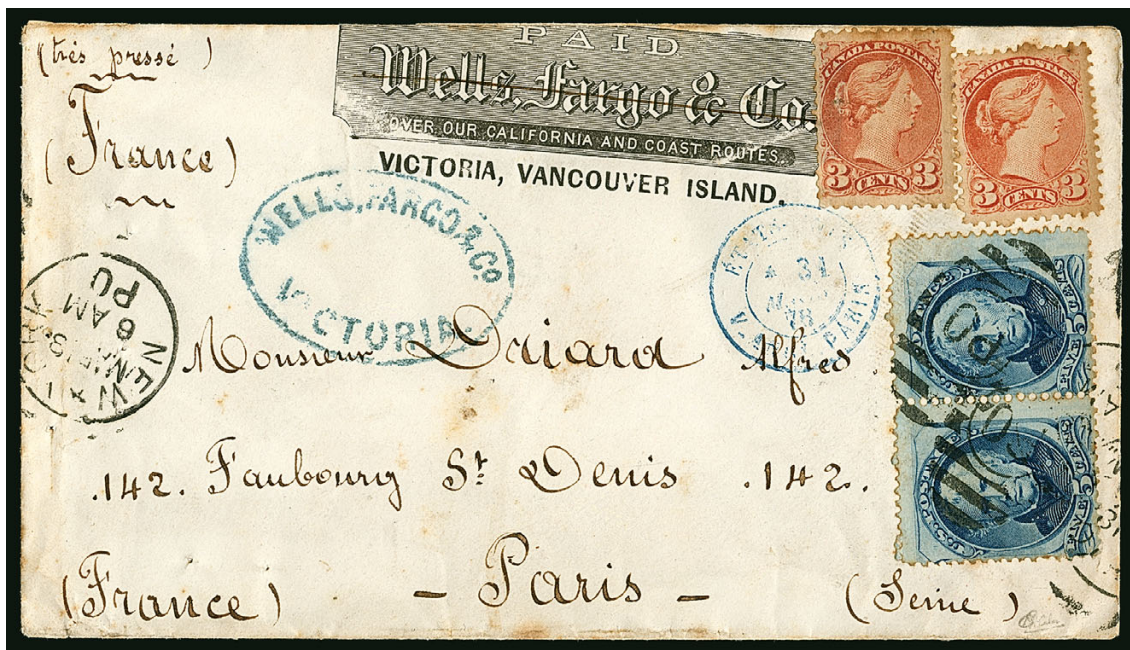 (très pressé)
(France)
PAID
Wells, Fargo & Co.
OVER OUR CALIFORNIA AND COAST ROUTES.
VICTORIA, VANCOUVER ISLAND.
CANADA POSTAGE
3 CENTS 3
CANADA POSTAGE
3 CENTS 3
WELLS, FARGO & Co
VICTORIA.
31
78
PARIS
NEW YORK
6 AM
PD
Monsieur Daiard Alfred
.142. Faubourg St Denis .142.
(France) - Paris - (Seine)